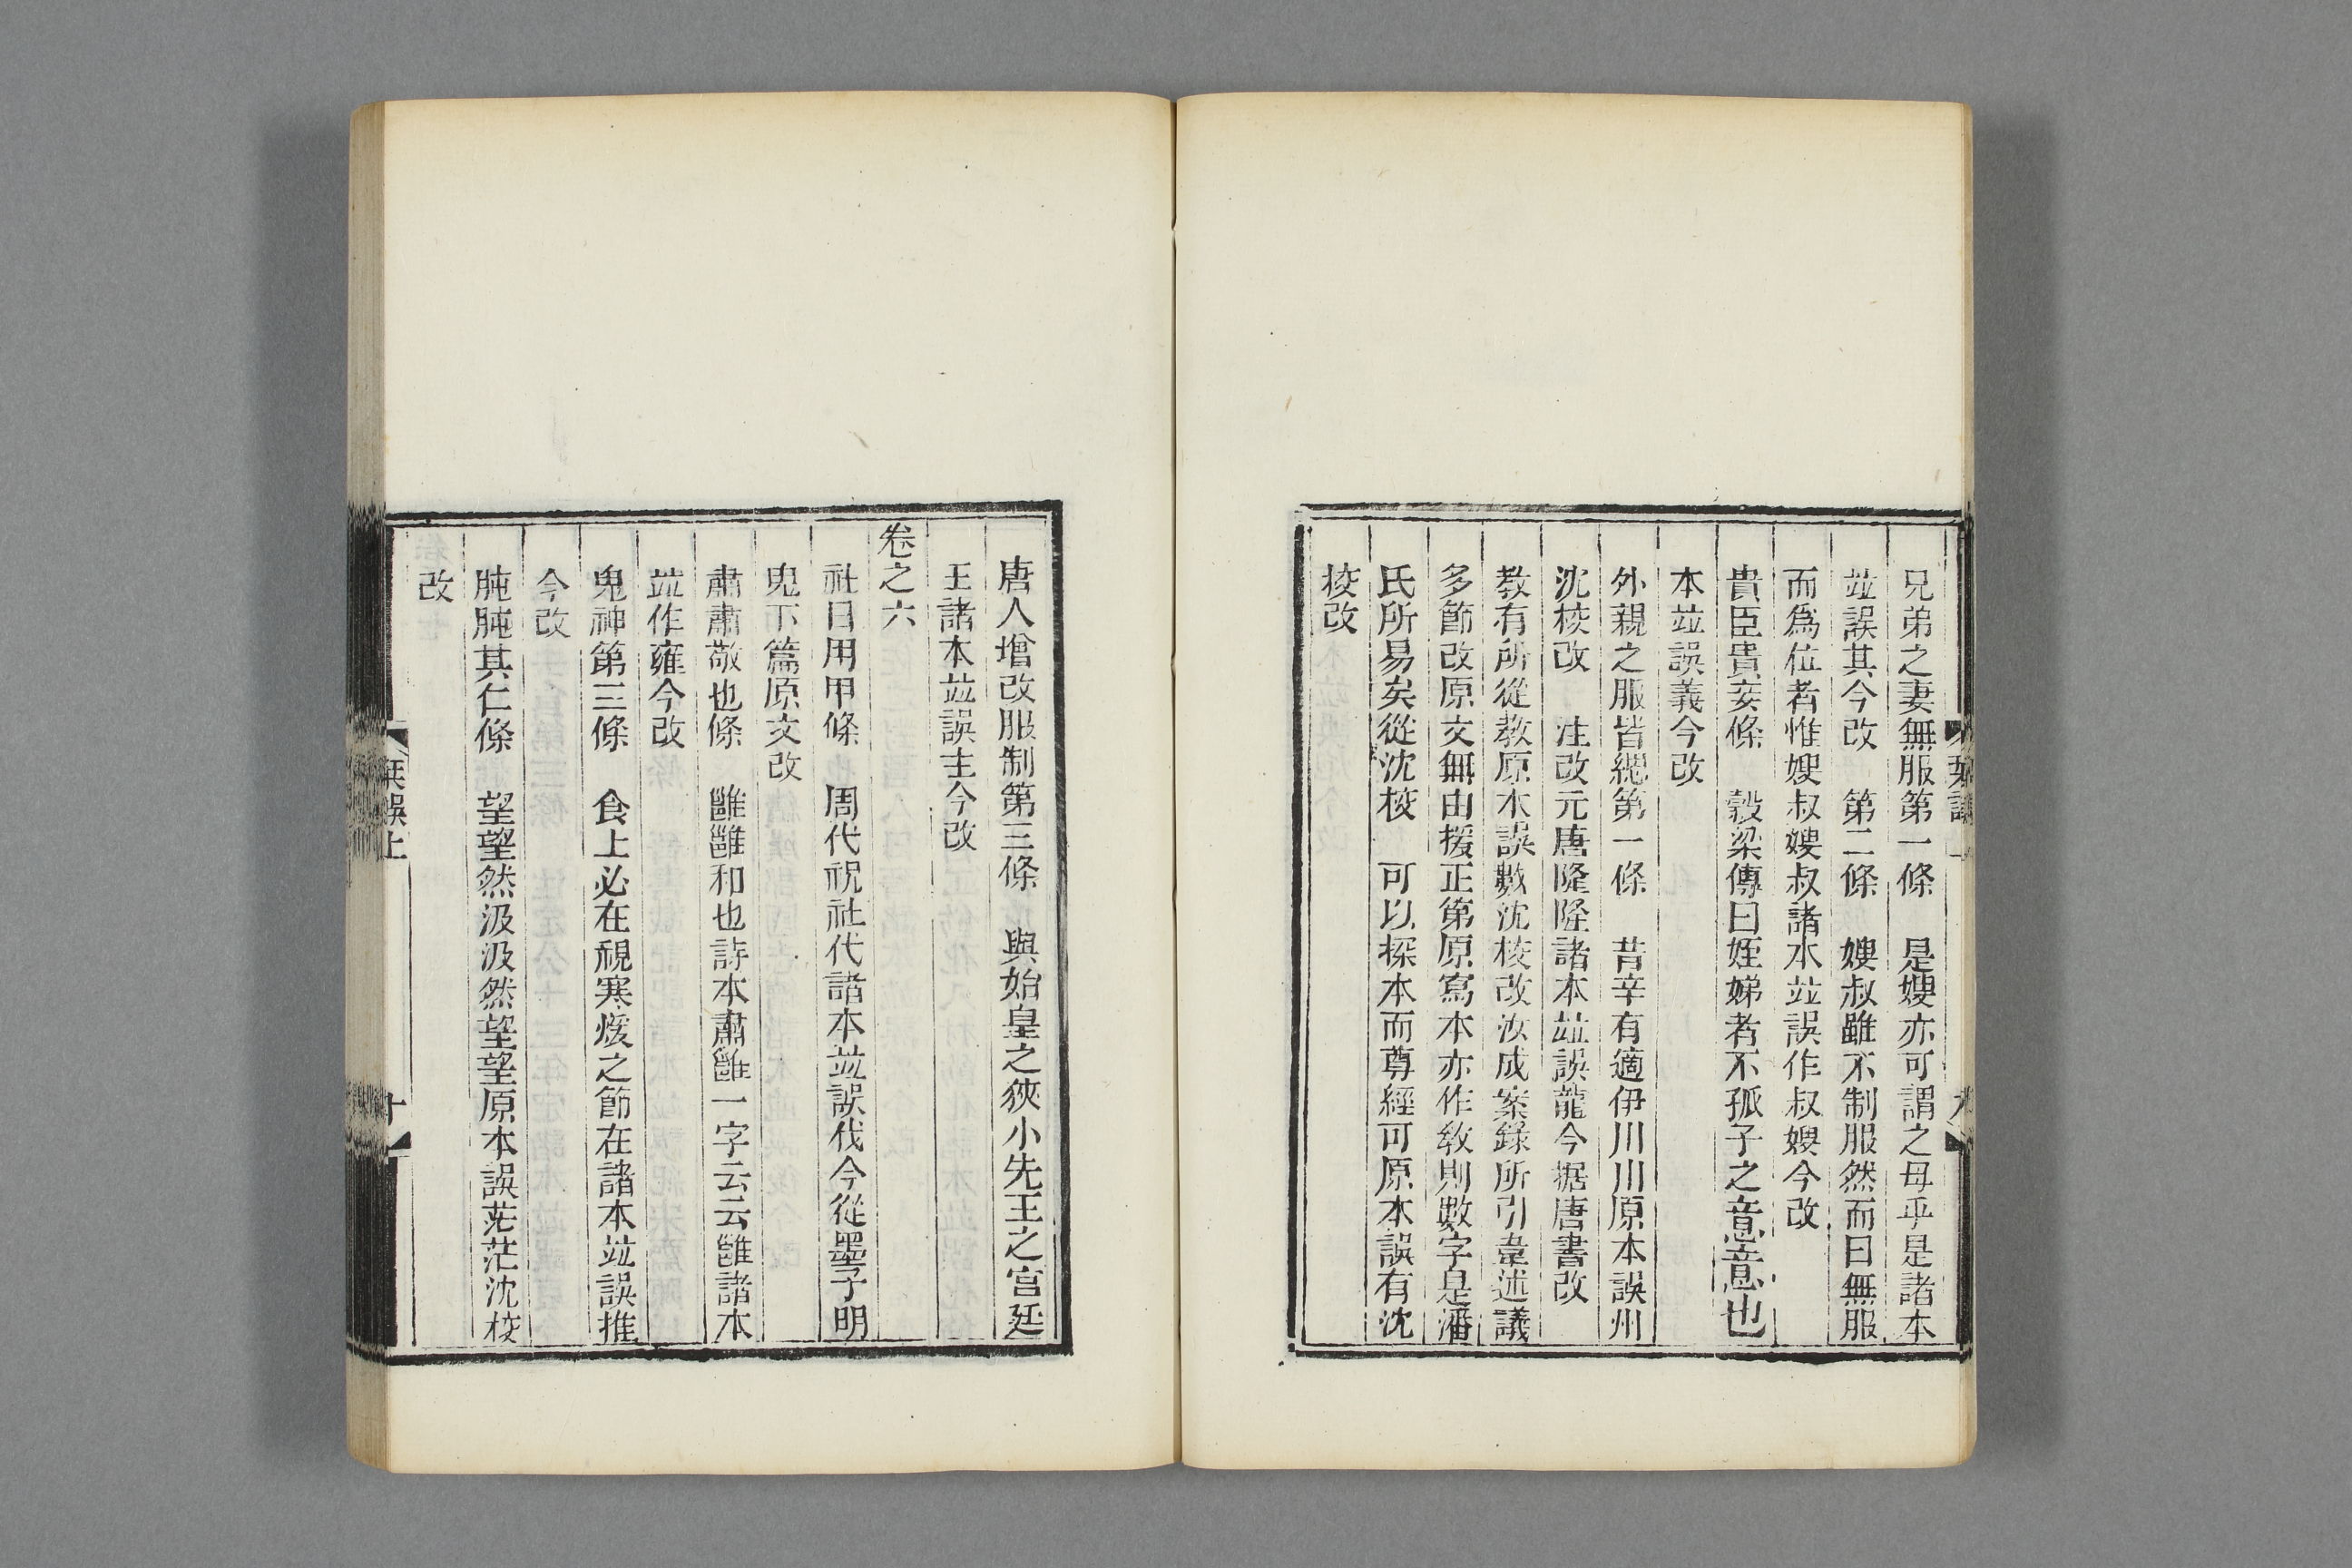 兄弟之妻無服第一條　是嫂亦可謂之母乎是諸本
竝誤其今改　第二條　嫂叔雖不制服然而曰無服
而爲位者惟嫂叔嫂叔諸本竝誤作叔嫂今改
貴臣貴妾條　榖梁傳曰姪娣者不孤子之意意也
本竝誤義今改
外親之服皆緦第一條　昔辛有適伊川川原本誤州
沈校改　注改元唐隆隆諸本竝誤龍今据唐書改
敎有所從敎原本誤數沈校改汝成案錄所引韋述議
多節改原文無由援正第原寫本亦作敎則數字是潘
氏所易矣從沈校　可以探本而尊經可原本誤有沈
校改
唐人增改服制第三條　與始皇之狹小先王之宮廷
王諸本竝誤主今改
卷之六
社日用甲條　周代祝社代諸本竝誤伐今從墨子明
鬼下篇原文改
肅肅敬也條　雝雝和也詩本肅雝一字云云雝諸本
竝作雍今改
鬼神第三條　食上必在視寒煖之節在諸本竝誤推
今改
肫肫其仁條　望望然汲汲然望望原本誤茫茫沈校
改
栞誤上
十